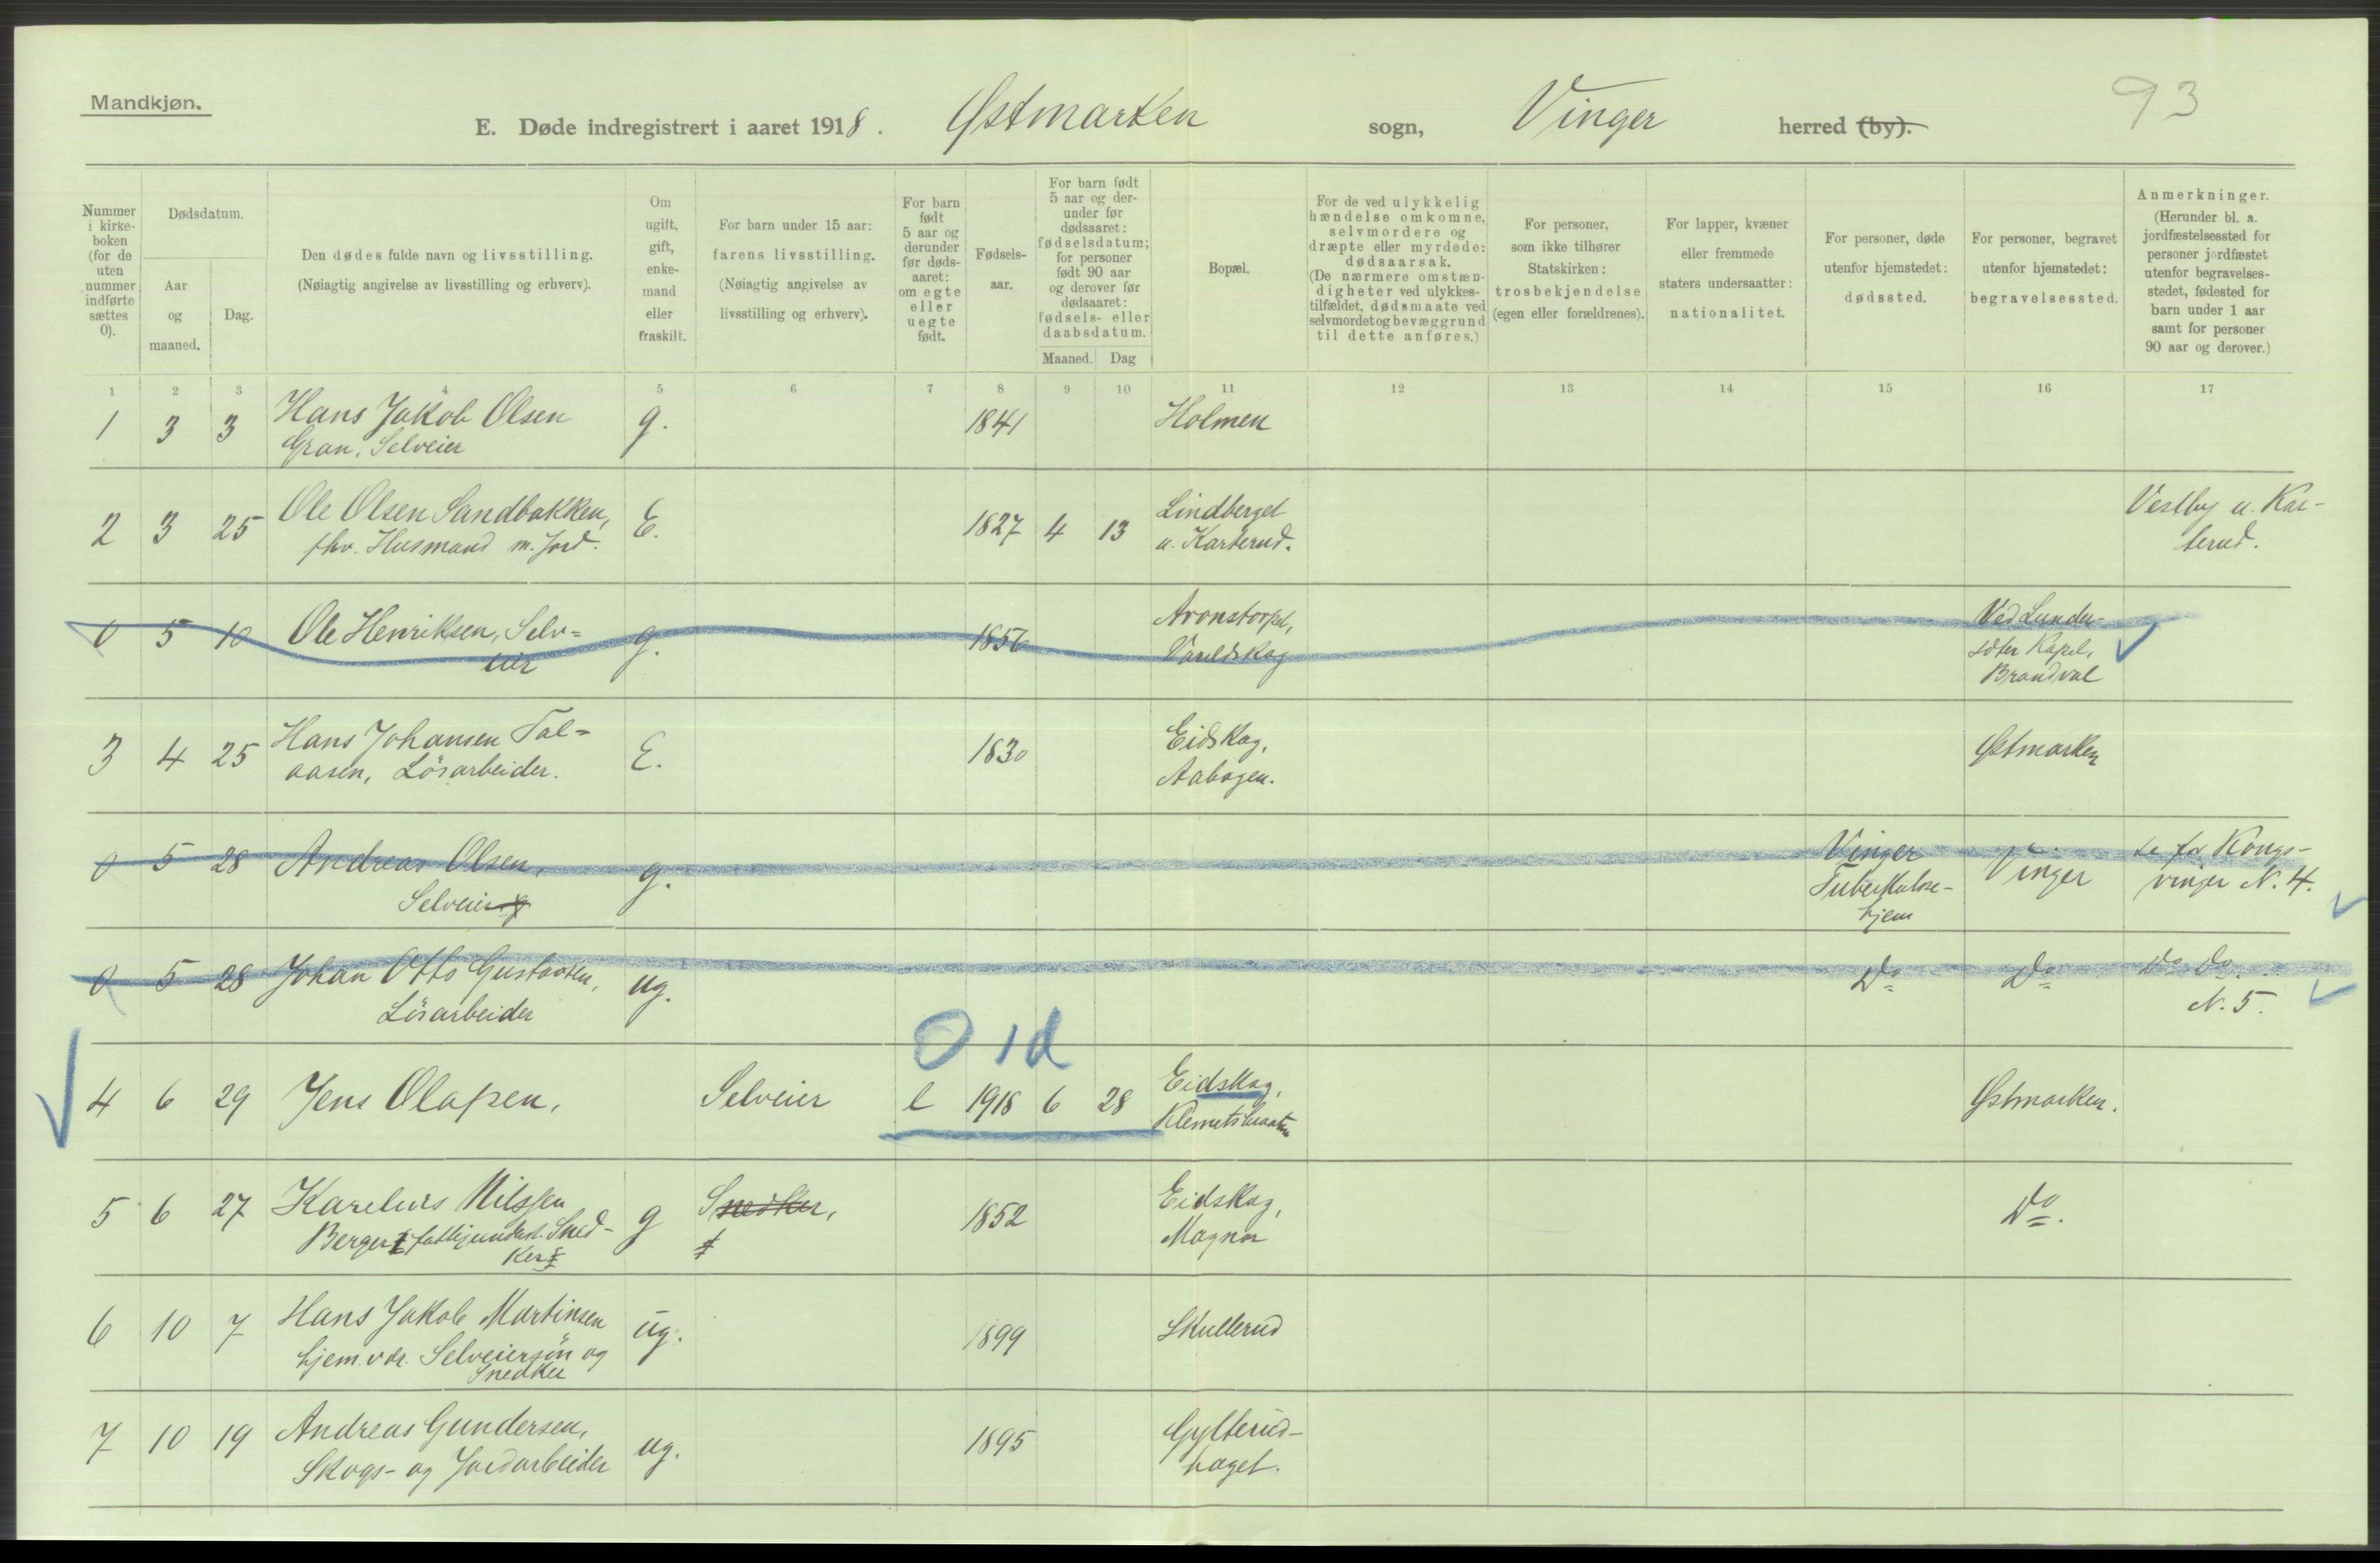 Mandkjøn.
93
E. Døde indregistrert i aaret 1918. Østmarken sogn, Vinger herred (by).
Nummer i kirkeboken (for de uten nummer indførte sættes 0).
Dødsdatum.
Aar og maaned.
Dag.
Den dødes fulde navn og livsstilling.
(Nøiagtig angivelse av livsstilling og erhverv).
Om ugift, gift, enkemand eller fraskilt.
For barn under 15 aar: farens livsstilling.
(Nøiagtig angivelse av livsstilling og erhverv).
For barn født 5 aar og derunder før dødsaaret: om egte eller uegte født.
Fødselsaar.
For barn født 5 aar og derunder før dødsaaret: fødselsdatum; for personer født 90 aar og derover før dødsaaret: fødsels- eller daabsdatum.
Maaned. Dag
Bopæl.
For de ved ulykkelig hændelse omkomne, selvmordere og dræpte eller myrdede: dødsaarsak.
(De nærmere omstændigheter ved ulykkestilfældet, dødsmaate ved selvmordet og bevæggrund til dette anføres.)
For personer, som ikke tilhører Statskirken: trosbekjendelse (egen eller forældrenes).
For lapper, kvæner eller fremmede staters undersaatter: nationalitet.
For personer, døde utenfor hjemstedet: dødssted.
For personer, begravet utenfor hjemstedet: begravelsessted.
Anmerkninger.
(Herunder bl. a. jordfæstelsessted for personer jordfæstet utenfor begravelsesstedet, fødested for barn under 1 aar samt for personer 90 aar og derover.)
1 2 3 4 5 6 7 8 9 10 11 12 13 14 15 16 17
1 3 3 Hans Jakob Olsen g. 1841 Holmen
Gran, Selveier
2 3 25 Ole Olsen Sandbakken, E. 1827 4 13 Lindberget Vestby u. Kar-
fhv. Husmand m. Jord. u. Karterud. terud.
0 5 10 Ole Henriksen, Selv= g. 1856 Aronstorpet, Ved Lunder-
eier Varaldskog sæter Kapel,
Brandval
3 4 25 Hans Johansen Tal= E. 1830 Eidskog, Østmarken
aasen, Lösarbeider. Aabogen.
0 5 28 Andreas Olsen, g. Vinger Vinger se for Kongs-
Selveier Tuberkulose- vinger N. 4.
hjem
0 5 28 Johan Otto Gustavsen, ug. Do Do Do Do.
Lösarbeider N. 5.
0 1d
4 6 29 Jens Olafsen, Selveier e 1918 6 28 Eidskog, Østmarken.
5 6 27 Karelius Nilssen g Snedker, 1852 Eidskog, Do.
Berger, fattigunderst. Sned- Magnor
ker
6 10 7 Hans Jakob Martinsen ug. 1899 Skullerud
hjem.vær. Selveiersön og
Snedker
7 10 19 Andreas Gundersen, ug. 1895 Gylterud-
Skogs- og Jordarbeider haget.